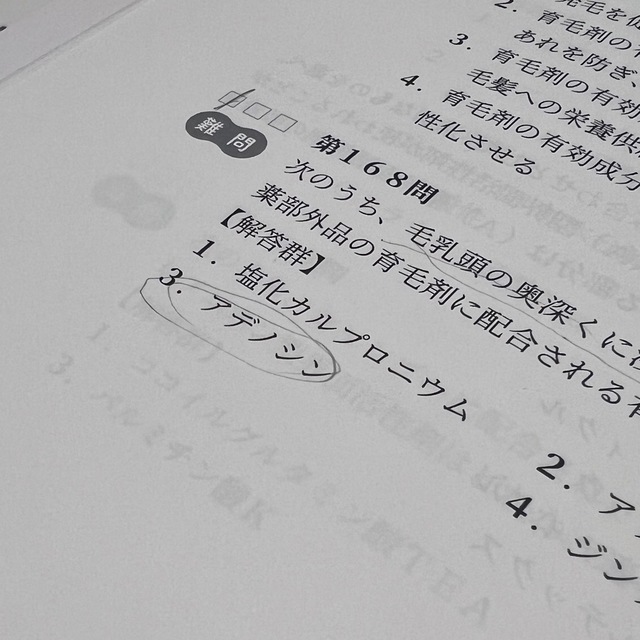 2. 発毛を促
育毛剤の有
3. あれを防ぎ、
育毛剤の有効
4. 毛髪への栄養供
育毛剤の有効成分
性化させる
難問
第168問
次のうち、毛乳頭の奥深くに
薬部外品の育毛剤に配合される有
【解答群】
1. 塩化カルプロニウム
2. ア
3. アデノシン
4. ジン